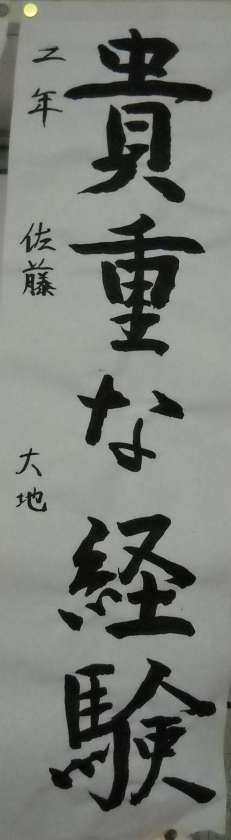 貴重な経験
二年 佐藤 大地